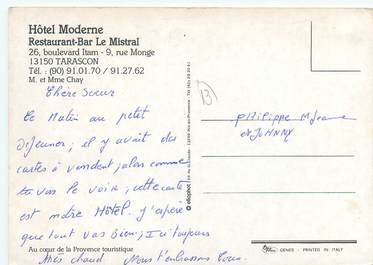 Hôtel Moderne
Restaurant-Bar Le Mistral
26, boulevard Itam - 9, rue Monge
13150 TARASCON
Tél. : (90) 91.01.70 / 91.27.62
M. et Mme Chay
Chère Soeur
Ce Matin au petit
déjeuner; il y avait des
cartes à vendent, alors comme
tu vas le voir, cette carte
est notre HOTEL. j'espère
que tout vas bien; Ici toujours
très chaud Nous t'embrassons Tous
Au cœur de la Provence touristique
13
© ellophot
PHilippe M Jeanne
et JOHNNY
GENES - PRINTED IN ITALY